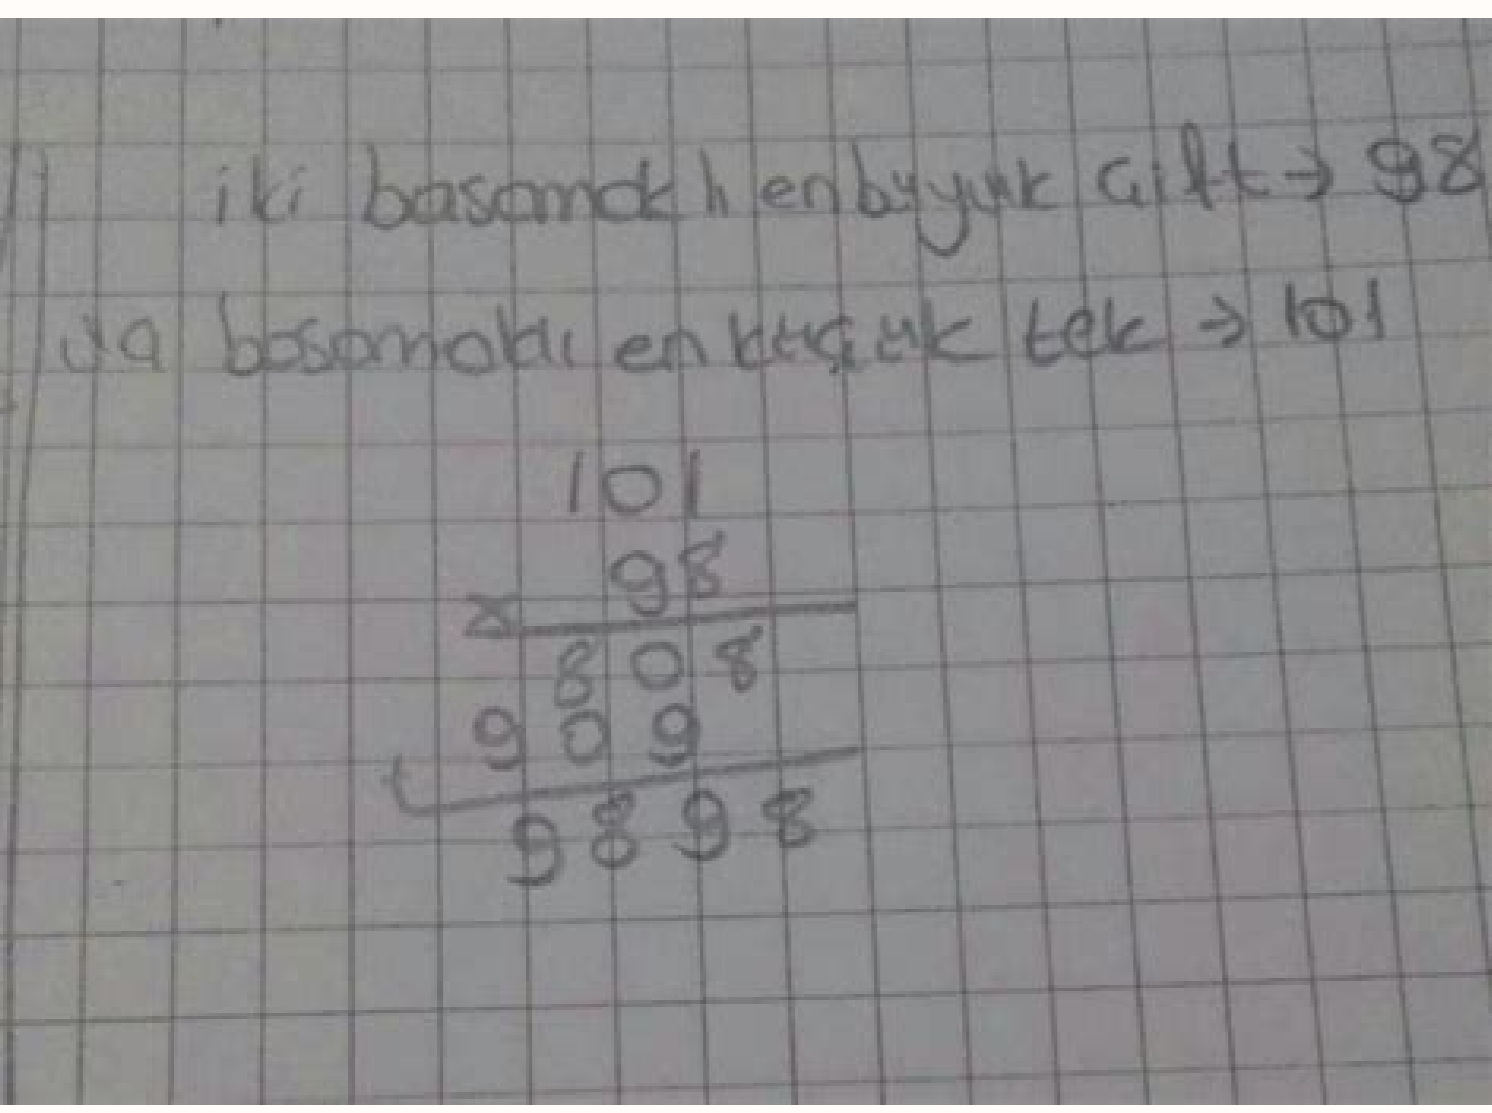 iki basamaklı en büyük çift → 98
üç basamaklı en küçük tek → 101
101
98
x
808
909
+
9898